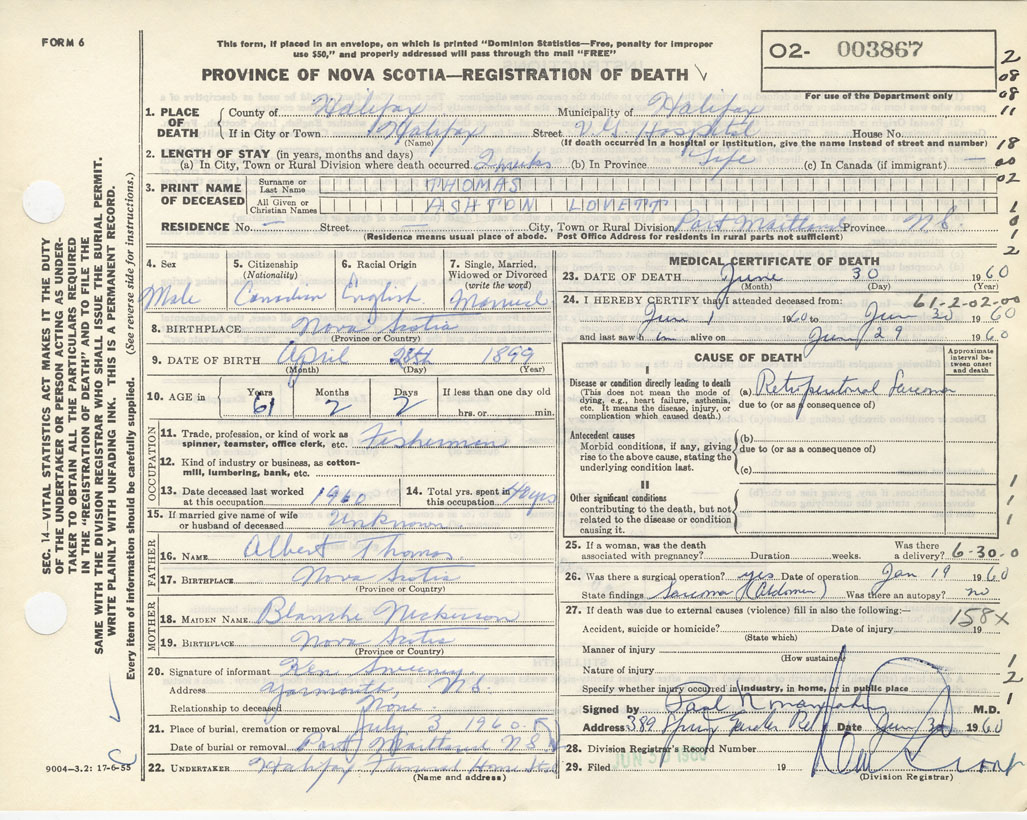 FORM 6
This form, if placed in an envelope, on which is printed "Dominion Statistics—Free, penalty for improper
use $50," and properly addressed will pass through the mail "FREE"
PROVINCE OF NOVA SCOTIA—REGISTRATION OF DEATH
O2- 003867
For use of the Department only
2
08
08
11
18
00
02
1
0
1
2
SEC. 14—VITAL STATISTICS ACT MAKES IT THE DUTY
OF THE UNDERTAKER OR PERSON ACTING AS UNDER-
TAKER TO OBTAIN ALL THE PARTICULARS REQUIRED
IN THE "REGISTRATION OF DEATH" AND TO FILE THE
SAME WITH THE DIVISION REGISTRAR WHO SHALL ISSUE THE BURIAL PERMIT.
WRITE PLAINLY WITH UNFADING INK. THIS IS A PERMANENT RECORD.
Every item of information should be carefully supplied. (See reverse side for instructions.)
1. PLACE OF DEATH County of Halifax Municipality of Halifax
If in City or Town Halifax Street V.G. Hospital House No.
(Name) (If death occurred in a hospital or institution, give the name instead of street and number)
2. LENGTH OF STAY (in years, months and days)
(a) In City, Town or Rural Division where death occurred 2 weeks (b) In Province Life (c) In Canada (if immigrant) —
3. PRINT NAME OF DECEASED Surname or Last Name THOMAS
All Given or Christian Names ASHTON LOVETT
RESIDENCE No. — Street — City, Town or Rural Division Port Maitland Province N.S.
(Residence means usual place of abode. Post Office Address for residents in rural parts not sufficient)
4. Sex Male
5. Citizenship (Nationality) Canadian
6. Racial Origin English
7. Single, Married, Widowed or Divorced (write the word) Married
8. BIRTHPLACE Nova Scotia
(Province or Country)
9. DATE OF BIRTH April 28th 1899
(Month) (Day) (Year)
10. AGE in Years 61 Months 2 Days 2 If less than one day old
hrs. or min.
OCCUPATION
11. Trade, profession, or kind of work as spinner, teamster, office clerk, etc. Fisherman
12. Kind of industry or business, as cotton-mill, lumbering, bank, etc.
13. Date deceased last worked at this occupation 1960
14. Total yrs. spent in this occupation 40 yrs
15. If married give name of wife or husband of deceased Unknown
FATHER
16. NAME Albert Thomas
17. BIRTHPLACE Nova Scotia
(Province or Country)
MOTHER
18. MAIDEN NAME Blanche Nickerson
19. BIRTHPLACE Nova Scotia
(Province or Country)
20. Signature of informant Ken Sweeny
Address Yarmouth, N.S.
Relationship to deceased None
21. Place of burial, cremation or removal July 3 1960
Date of burial or removal Port Maitland N.S.
22. UNDERTAKER Halifax Funeral Home
(Name and address)
9004—3.2: 17-6-55
MEDICAL CERTIFICATE OF DEATH
23. DATE OF DEATH June 30 1960
(Month) (Day) (Year)
61-2-02-00
24. I HEREBY CERTIFY that I attended deceased from:
Jun 1 1960 to Jun 30 1960
and last saw him alive on Jun 29 1960
CAUSE OF DEATH
Approximate interval between onset and death
I
Disease or condition directly leading to death
(This does not mean the mode of dying, e.g., heart failure, asthenia, etc. It means the disease, injury, or complication which caused death.)
(a) Retroperitoneal Sarcoma
due to (or as a consequence of)
Antecedent causes
Morbid conditions, if any, giving rise to the above cause, stating the underlying condition last.
(b)
due to (or as a consequence of)
(c)
II
Other significant conditions
contributing to the death, but not related to the disease or condition causing it.
1
1
1
25. If a woman, was the death associated with pregnancy? Duration weeks. Was there a delivery? 6-30-0
26. Was there a surgical operation? yes Date of operation Jan 19 1960
State findings Sarcoma (Abdomen) Was there an autopsy? no
27. If death was due to external causes (violence) fill in also the following:—
158X
Accident, suicide or homicide? Date of injury 19
(State which)
Manner of injury
(How sustained)
Nature of injury
Specify whether injury occurred in industry, in home, or in public place
1
2
1
Signed by Paul M.D.
Address 389 Spring Garden Rd Date Jun 30 1960
28. Division Registrar's Record Number
29. Filed JUN 30 1960 19
(Division Registrar)